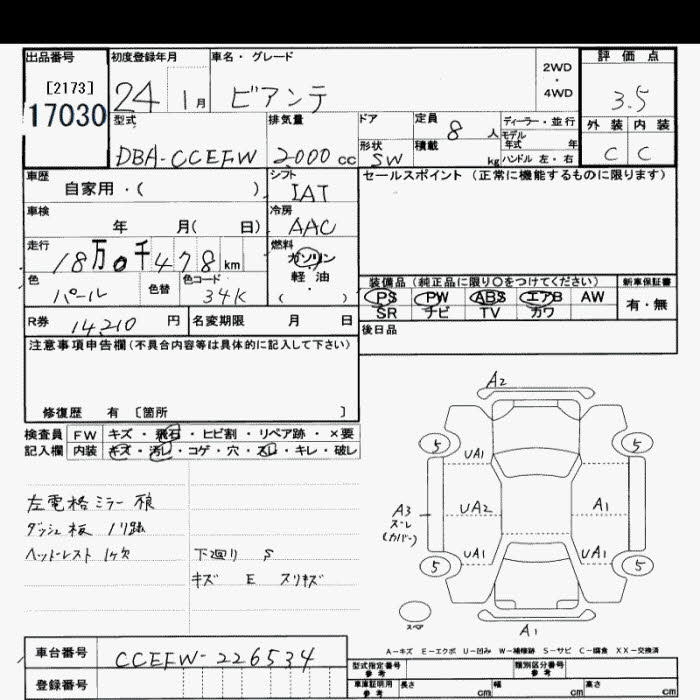 出品番号 初度登録年月 車名・グレード 評価点
[2173] 24 1月 ビアンテ 2WD・4WD 3.5
17030
型式 排気量 ドア 定員 8人 ディーラー・並行 外装 内装
モデル年式 年
DBA-CCEFW 2000cc 形状 SW 積載 kg ハンドル 左・右 C C
車歴 自家用・( ) シフト IAT セールスポイント (正常に機能するものに限ります)
車検 年 月( 日) 冷房 AAC
走行 18万0千478km 燃料 ガソリン
軽・油
・
( )
色 パール 色替 色コード 34K
装備品 (純正品に限り○をつけてください) 新車保証書
PS PW ABS エアB AW 有・無
SR ナビ TV カワ
R券 14,210円 名変期限 月 日 後日品
注意事項申告欄(不具合内容等は具体的に記入して下さい)
修復歴 有 〔箇所 〕
検査員 FW キズ・飛石・ヒビ割・リペア跡・×要
記入欄 内装 キズ・汚レ・コゲ・穴・スレ・キレ・破レ
左電格ミラー
ダッシュ板
ヘッドレスト 1ケ欠 下廻り S
キズ E スリキズ
A2
5 5
UA1
A3 UA2 A1
スレ
(カバー)
UA1 UA1
5 5
スペア
A1
A-キズ E-エクボ U-凹み W-補修跡 S-サビ C-腐食 XX-交換済
車台番号 CCEFW-226534
型式指定番号 参考 類別区分番号 参考
登録番号 車庫証明用 参考 長さ cm 幅 cm 高さ cm